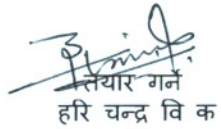 तयार गर्ने
हरि चन्द्र वि क